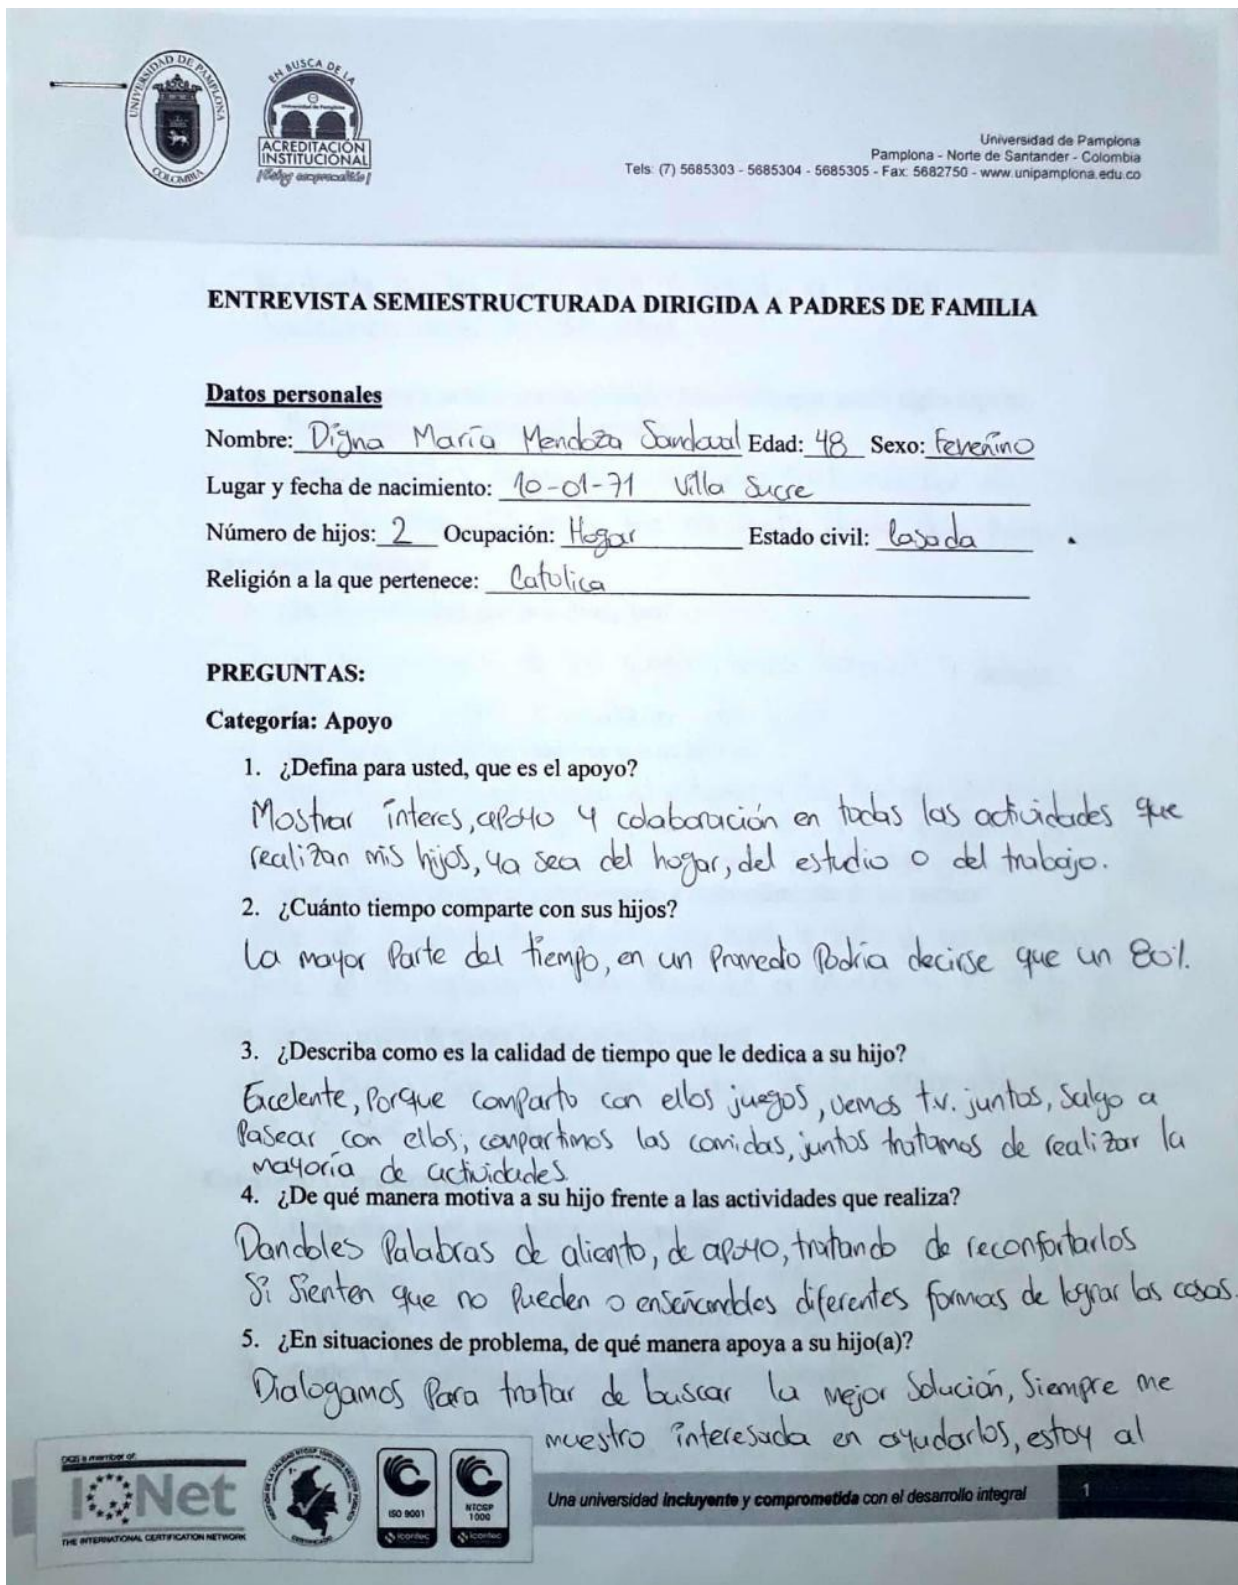 UNIVERSIDAD DE PAMPLONA
COLOMBIA
EN BUSCA DE LA
Universidad de Pamplona
ACREDITACIÓN
INSTITUCIONAL
Universidad de Pamplona
Pamplona - Norte de Santander - Colombia
Tels: (7) 5685303 - 5685304 - 5685305 - Fax: 5682750 - www.unipamplona.edu.co
ENTREVISTA SEMIESTRUCTURADA DIRIGIDA A PADRES DE FAMILIA
Datos personales
Nombre: Digna María Mendoza Sandoval Edad: 48 Sexo: Fevenino
Lugar y fecha de nacimiento: 10-01-71 Villa Sucre
Número de hijos: 2 Ocupación: Hogar Estado civil: Casada
Religión a la que pertenece: Catolica
PREGUNTAS:
Categoría: Apoyo
1. ¿Defina para usted, que es el apoyo?
Mostrar interes, apoyo y colaboración en todas las actividades que
realizan mis hijos, ya sea del hogar, del estudio o del trabajo.
2. ¿Cuánto tiempo comparte con sus hijos?
La mayor Parte del tiempo, en un Promedio Podría decirse que un 80%.
3. ¿Describa como es la calidad de tiempo que le dedica a su hijo?
Excelente, Porque comparto con ellos juegos, vemos t.v. juntos, Salgo a
Pasear con ellos, compartimos las comidas, juntos tratamos de realizar la
mayoría de actividades.
4. ¿De qué manera motiva a su hijo frente a las actividades que realiza?
Dandoles Palabras de aliento, de apoyo, tratando de reconfortarlos
Si Sienten que no Pueden o enseñandoles diferentes formas de lograr las cosas.
5. ¿En situaciones de problema, de qué manera apoya a su hijo(a)?
Dialogamos Para tratar de buscar la mejor Solución, Siempre me
muestro interesada en ayudarlos, estoy al
IQNet
THE INTERNATIONAL CERTIFICATION NETWORK
CERTIFICADO
ISO 9001
icontec
NTCGP
1000
icontec
Una universidad incluyente y comprometida con el desarrollo integral
1